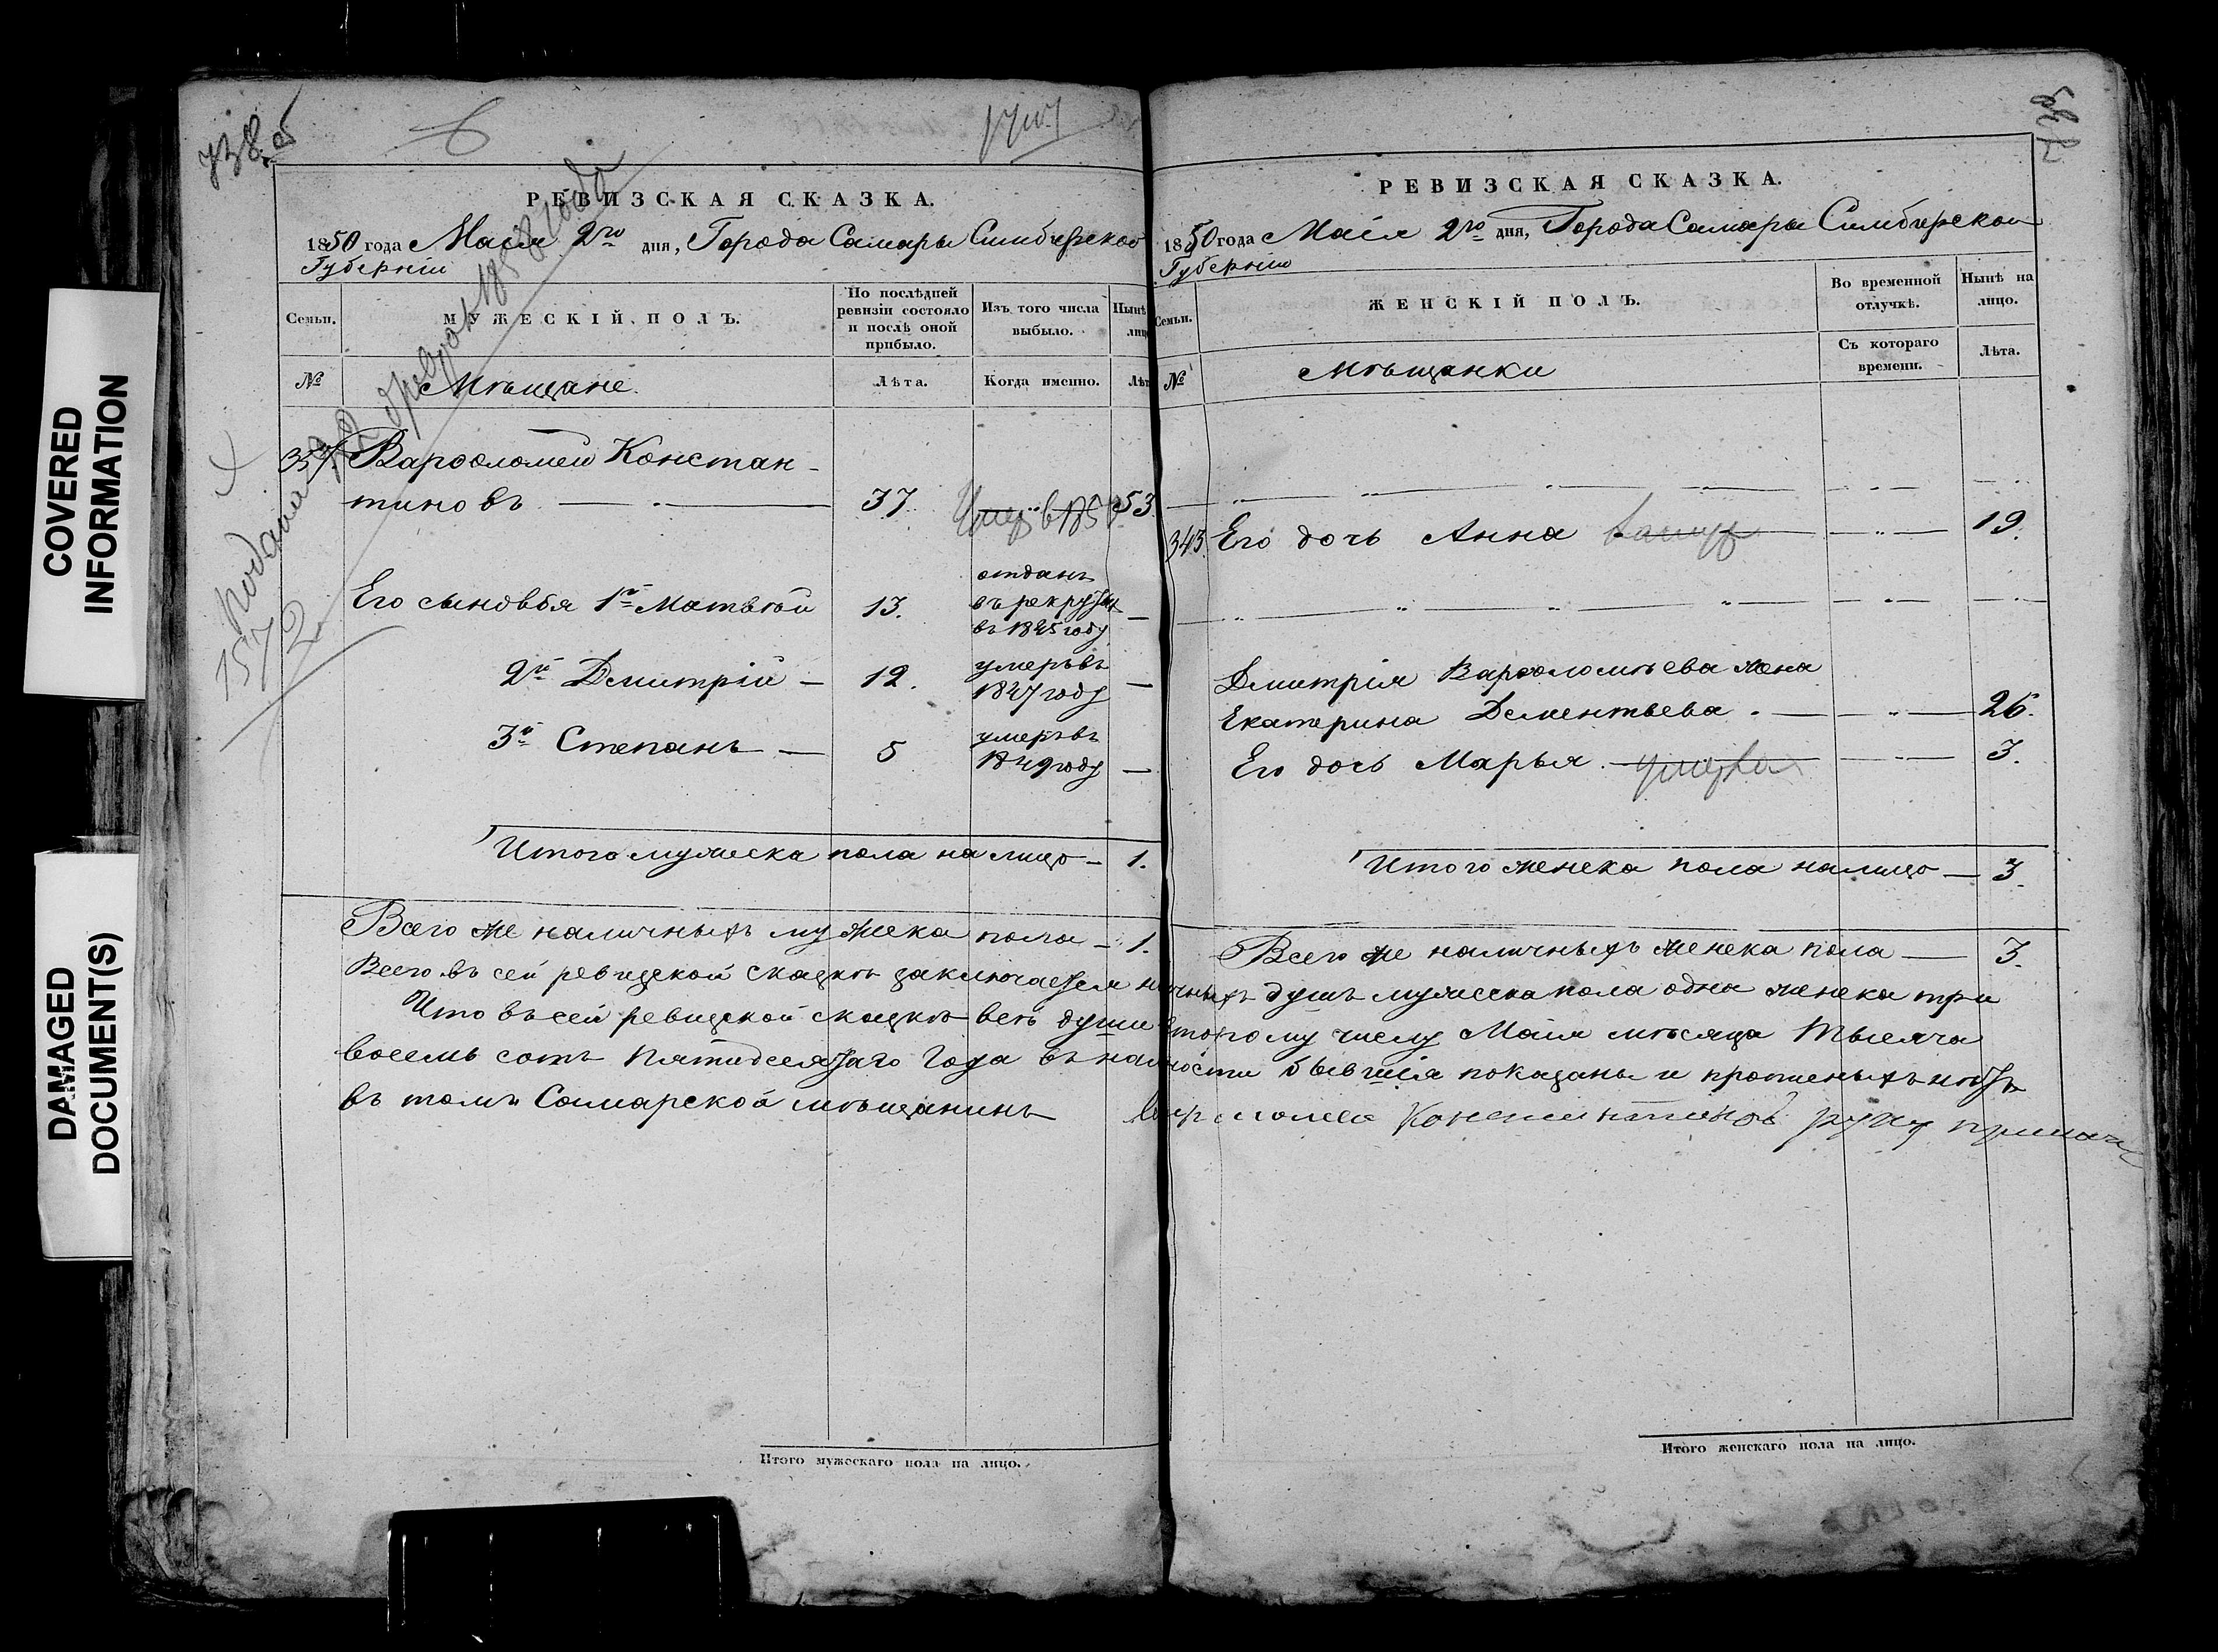 COVERED
INFORMATION
DAMAGED
DOCUMENT(S)
738 об
РЕВИЗСКАЯ СКАЗКА.
1850 года Маія 2го дня, Города Самары Симбирской
Губерніи
Семьи.
МУЖЕСКІЙ ПОЛЪ.
По послѣдней
ревизіи состояло
и послѣ оной
прибыло.
Изъ того числа
выбыло.
Нынѣ
лиц
№
Мѣщане.
Лѣта.
Когда именно.
Лѣт
Подана ревизіи 1858 года
1572
Варфоломей Констан-
тиновъ 37 Умер в 185 53.
Его сыновья 1й Матвѣй 13. отданъ
въ рекруты
въ 1845 году
2й Дмитрій 12. умеръ въ
1847 году
3й Степанъ 5 умеръ въ
1849 году
Итого мужеска пола на лицо 1.
Всего же наличныхъ мужеска пола 1.
РЕВИЗСКАЯ СКАЗКА.
1850 года Маія 2го дня, Города Самары Симбирской
Губерніи
Семьи.
ЖЕНСКІЙ ПОЛЪ.
Во временной
отлучкѣ.
Нынѣ на
лицо.
№
Мѣщанки
Съ котораго
времени.
Лѣта.
343. Его дочь Анна 19.
Дмитрія Варфоломѣева жена
Екатерина Дементьева 26.
Его дочь Марья 3.
Итого женска пола налицо 3.
Всего же наличныхъ женска пола 3.
Всего въ сей ревизской сказкѣ заключается душъ мужеска пола одна женска три
Что въ сей ревизской сказкѣ всѣ души второму числу Маія мѣсяца Тысяча
восемь сотъ Пятидесятаго Года въ наличности бывшія показаны и прописныхъ нѣтъ
въ томъ Самарской мѣщанинъ Константиновъ руку
Итого мужескаго пола на лицо.
Итого женскаго пола на лицо.